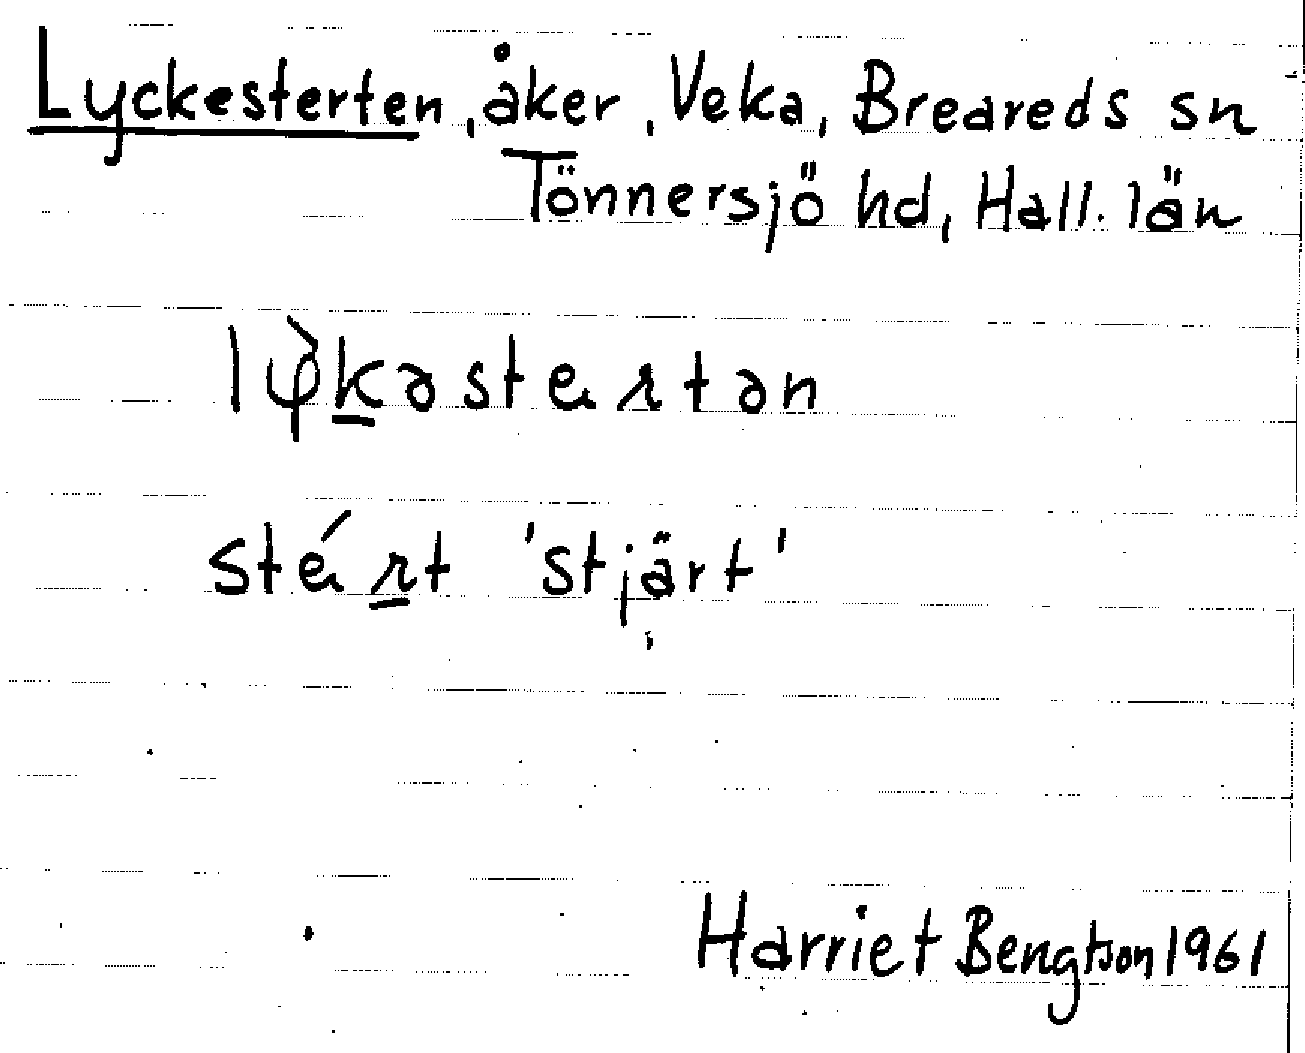 Lyckesterten, åker, Veka, Breareds sn
Tönnersjö hd, Hall. län
lφ̀k̲əstertən
stért 'stjärt'
Harriet Bengtson 1961